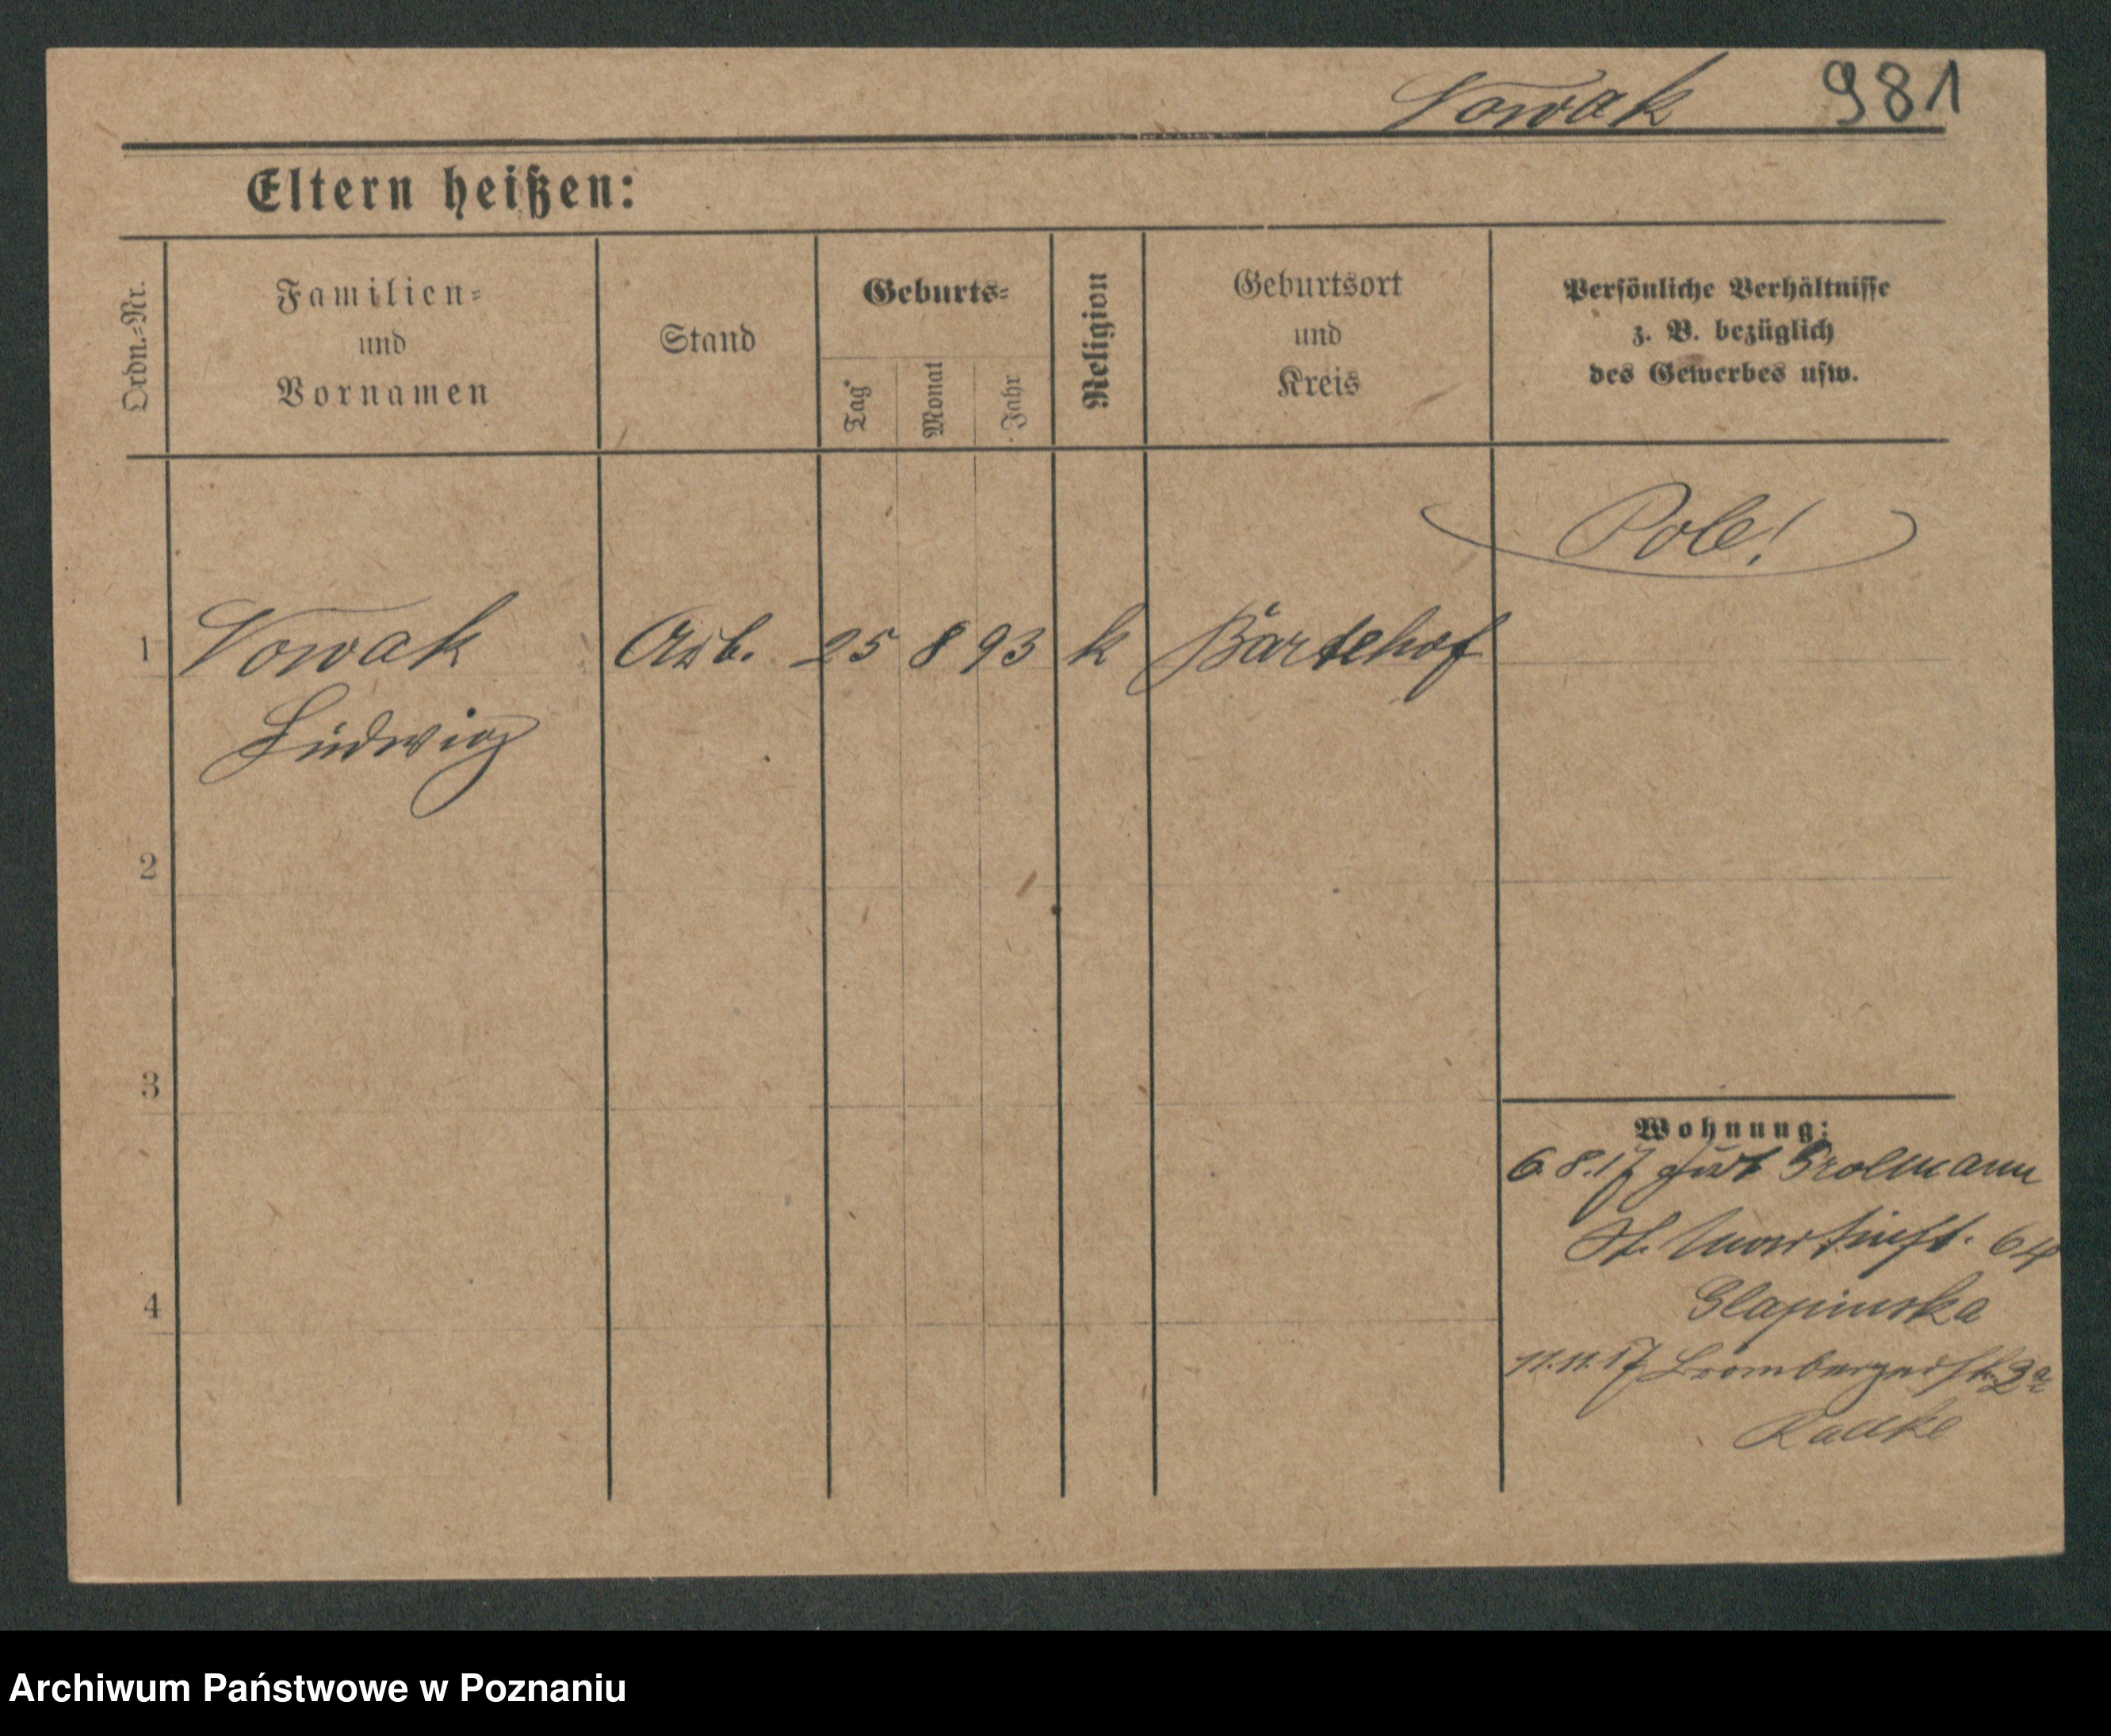 Nowak 981
Eltern heißen:
Ordn.-Nr.
Familien-
und
Vornamen
Stand
Geburts-
Tag
Monat
Jahr
Religion
Geburtsort
und
Kreis
Persönliche Verhältnisse
z. B. bezüglich
des Gewerbes usw.
Pole!
1 Nowak Arb. 25 8 93 k Bärtehof
Ludwig
2
3
4
Wohnung:
6.8.17 Fort Grolmann
St. Martinst. 64
Glapinska
11.11.17 Brombergerstr. 2a
Radtke
Archiwum Państwowe w Poznaniu